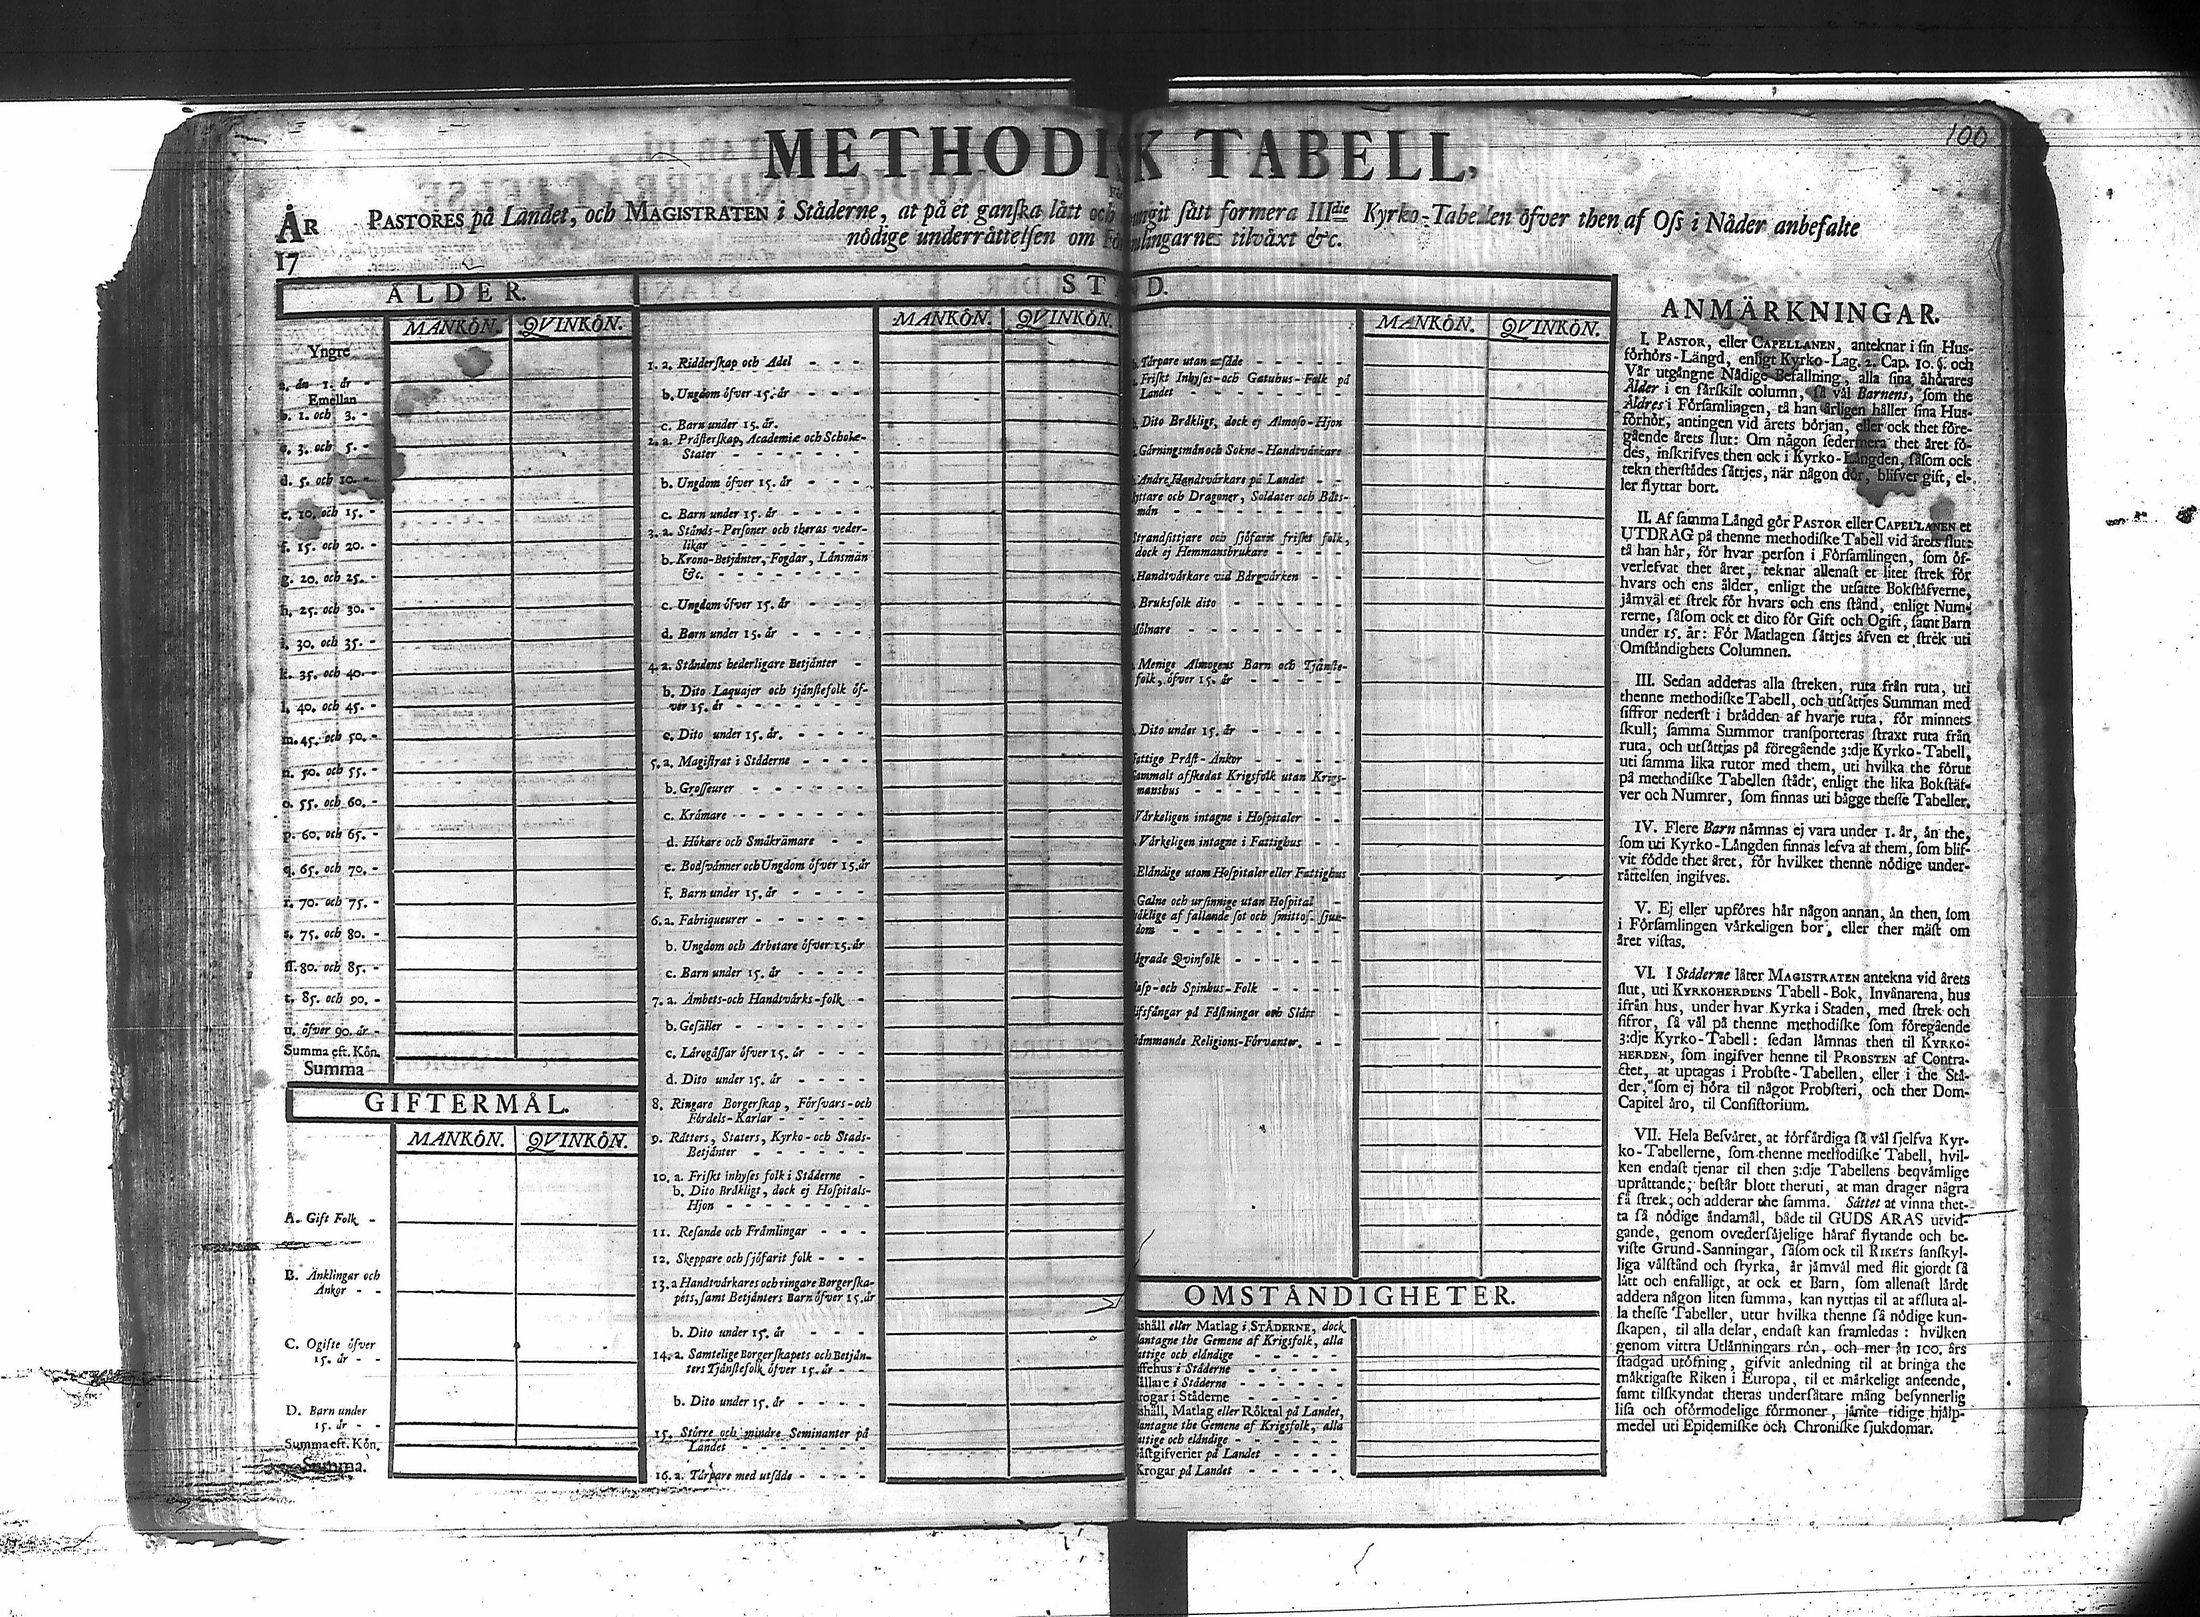 100
METHODISK TABELL,
ÅR PASTORES på Landet, och MAGISTRATEN i Ståderne, at på et ganska lått och sått formera IIIdie Kyrko-Tabellen öfver then af Oss i Nåder anbefalte
17 nödige underråttelsen om tilvåxt &c.
ÅLDER.
MANKÖN. QVINKÖN.
Yngre
a. ån 1. år -
Emellan
b. 1. och 3. -
c. 3. och 5. -
d. 5. och 10. -
e. 10. och 15. -
f. 15. och 20. -
g. 20. och 25. -
h. 25. och 30. -
i. 30. och 35. -
k. 35. och 40. -
l. 40. och 45. -
m. 45. och 50. -
n. 50. och 55. -
o. 55. och 60. -
p. 60. och 65. -
q. 65. och 70. -
r. 70. och 75. -
s. 75. och 80. -
ſſ. 80. och 85. -
t. 85. och 90. -
u. öfver 90. år -
Summa eft. Kön.
Summa
GIFTERMÅL.
MANKÖN. QVINKÖN.
A. Gift Folk -
B. Änklingar och
Änkor - -
C. Ogifte öfver
15. år - -
D. Barn under
15. år - -
Summa eft. Kön.
Summa.
MANKÖN. QVINKÖN.
1. a. Ridderskap och Adel - - -
b. Ungdom öfver 15. år - - -
c. Barn under 15. år.
2. a. Pråsterskap, Academiæ och Scholæ-
Stater - - - - - - -
b. Ungdom öfver 15. år - - -
c. Barn under 15. år - - - -
3. a. Stånds-Personer och theras veder-
likar - - - - - - - -
b. Krono-Betjånter, Fogdar, Lånsmån
&c. - - - - - - - -
c. Ungdom öfver 15. år - - -
d. Barn under 15. år - - - -
4. a. Ståndens hederligare Betjånter -
b. Dito Laquajer och tjånstefolk öf-
ver 15. år - - - - - - -
c. Dito under 15. år. - - - -
5. a. Magistrat i Ståderne - - - -
b. Grosseurer - - - - - -
c. Kråmare - - - - - - -
d. Hökare och Småkråmare - -
e. Bodsvånner och Ungdom öfver 15. år
f. Barn under 15. år - - - -
6. a. Fabriqueurer - - - - - -
b. Ungdom och Arbetare öfver 15. år
c. Barn under 15. år - - - -
7. a. Ämbets-och Handtvårks-folk -
b. Gesåller - - - - - - -
c. Lårogåssar öfver 15. år - - -
d. Dito under 15. år - - - -
8. Ringare Borgerskap, Försvars-och
Fördels-Karlar - - - - -
9. Råtters, Staters, Kyrko-och Stads-
Betjånter - - - - - - -
10. a. Friskt inhyses folk i Ståderne -
b. Dito Bråkligt, dock ej Hospitals-
Hjon - - - - - - - -
11. Resande och Fråmlingar - - -
12. Skeppare och sjöfarit folk - - -
13. a Handtvårkares och ringare Borgerska-
pets, samt Betjånters Barn öfver 15. år
b. Dito under 15. år - - -
14. a. Samtelige Borgerskapets och Betjån-
ters Tjånstefolk öfver 15. år - -
b. Dito under 15. år - - - -
15. Större och mindre Seminanter på
Landet - - - - - - -
16. a. Tårpare med utsåde - - - -
MANKÖN. QVINKÖN.
Tårpare utan utsåde - - - - -
Friskt Inhyses-och Gatuhus-Folk på
Landet - - - - - - - -
Dito Bråkligt, dock ej Almoso-Hjon
Gårningsmån och Sokne-Handtvårkare
Andre Handtvårkare på Landet - -
och Dragoner, Soldater och Båts-
mån - - - - - - - - -
Strandsittjare och sjöfarit friskt folk,
dock ej Hemmansbrukare - - - -
Handtvårkare vid Bårgvårken - -
Bruksfolk dito - - - - - -
Mölnare - - - - - - - -
Menige Almogens Barn och Tjånste-
folk, öfver 15. år - - - - -
Dito under 15. år - - - - -
Fattige Pråst-Änkor - - - - -
afskedat Krigsfolk utan Krigs-
manshus - - - - - - -
Vårkeligen intagne i Hospitaler - -
Vårkeligen intagne i Fattighus - -
Elåndige utom Hospitaler eller Fattighus
Galne och ursinnige utan Hospital -
af fallande sot och smittos. sjuk-
dom - - - - - - - -
Qvinfolk - - - - -
och Spinhus-Folk - - - -
på Fåstningar och Slått -
Religions-Förvanter. - -
OMSTÅNDIGHETER.
eller Matlag i STÅDERNE, dock
the Gemene af Krigsfolk, alla
och elåndige - - - - -
i Ståderne - - - - -
i Ståderne - - - - -
i Ståderne - - - - -
Matlag eller Röktal på Landet,
the Gemene af Krigsfolk, alla
och elåndige - - - - -
på Landet - - - -
Krogar på Landet - - - - -
ANMÄRKNINGAR.
I. PASTOR, eller CAPELLANEN, anteknar i sin Hus-
förhörs-Längd, enligt Kyrko-Lag. 2. Cap. 10. §. och
Vår utgångne Nådige Befallning, alla sina åhörares
Ålder i en sårskilt column, så vål Barnens, som the
Äldres i Församlingen, tå han årligen håller sina Hus-
förhör, antingen vid årets början, eller ock thet före-
gående årets slut: Om någon sedermera thet året fö-
des, inskrifves then ock i Kyrko-Långden, såsom ock
tekn therstådes såttjes, når någon dör, blifver gift, el-
ler flyttar bort.
II. Af samma Långd gör PASTOR eller CAPELLANEN et
UTDRAG på thenne methodiske Tabell vid årets slut:
tå han hår, för hvar person i Församlingen, som öf-
verlefvat thet året, teknar allenast et litet strek för
hvars och ens ålder, enligt the utsatte Bokståfverne,
jåmvål et strek för hvars och ens stånd, enligt Num-
rerne, såsom ock et dito för Gift och Ogift, samt Barn
under 15. år: För Matlagen såttjes åfven et strek uti
Omståndighets Columnen.
III. Sedan adderas alla streken, ruta från ruta, uti
thenne methodiske Tabell, och utsåttjes Summan med
siffror nederst i brådden af hvarje ruta, för minnets
skull; samma Summor transporteras straxt ruta från
ruta, och utsåttjas på föregående 3:dje Kyrko-Tabell,
uti samma lika rutor med them, uti hvilka the förut
på methodiske Tabellen stådt, enligt the lika Bokståf-
ver och Numrer, som finnas uti bågge thesse Tabeller.
IV. Flere Barn nåmnas ej vara under 1. år, ån the,
som uti Kyrko-Långden finnas lefva af them, som blif-
vit födde thet året, för hvilket thenne nödige under-
råttelsen ingifves.
V. Ej eller upföres hår någon annan, ån then, som
i Församlingen vårkeligen bor, eller ther måst om
året vistas.
VI. I Ståderne låter MAGISTRATEN antekna vid årets
slut, uti KYRKOHERDENS Tabell-Bok, Invånarena, hus
ifrån hus, under hvar Kyrka i Staden, med strek och
sifror, så vål på thenne methodiske som föregående
3:dje Kyrko-Tabell: sedan låmnas then til KYRKO-
HERDEN, som ingifver henne til PROBSTEN af Contra-
ctet, at uptagas i Probste-Tabellen, eller i the Stå-
der, som ej höra til något Probsteri, och ther Dom-
Capitel åro, til Consistorium.
VII. Hela Besvåret, at förfårdiga så vål sjelfva Kyr-
ko-Tabellerne, som thenne methodiske Tabell, hvil-
ken endast tjenar til then 3:dje Tabellens beqvåmlige
upråttande, består blott theruti, at man drager några
få strek, och adderar the samma. Såttet at vinna thet-
ta så nödige åndamål, både til GUDS ÄRAS utvid-
gande, genom ovedersåjelige håraf flytande och be-
viste Grund-Sanningar, såsom ock til RIKETS sanskyl-
liga vålstånd och styrka, år jåmvål med flit gjordt så
lått och enfalligt, at ock et Barn, som allenast lårdt
addera någon liten summa, kan nyttjas til at afsluta al-
la thesse Tabeller, utur hvilka thenne så nödige kun-
skapen, til alla delar, endast kan framledas: hvilken
genom vittra Utlånningars rön, och mer ån 100. års
stadgad utöfning, gifvit anledning til at bringa the
måktigaste Riken i Europa, til et mårkeligt anseende,
samt tilskyndat theras undersåtare mång besynnerlig
lisa och oförmodelige förmoner, jåmte tidige hjålp-
medel uti Epidemiske och Chroniske sjukdomar.